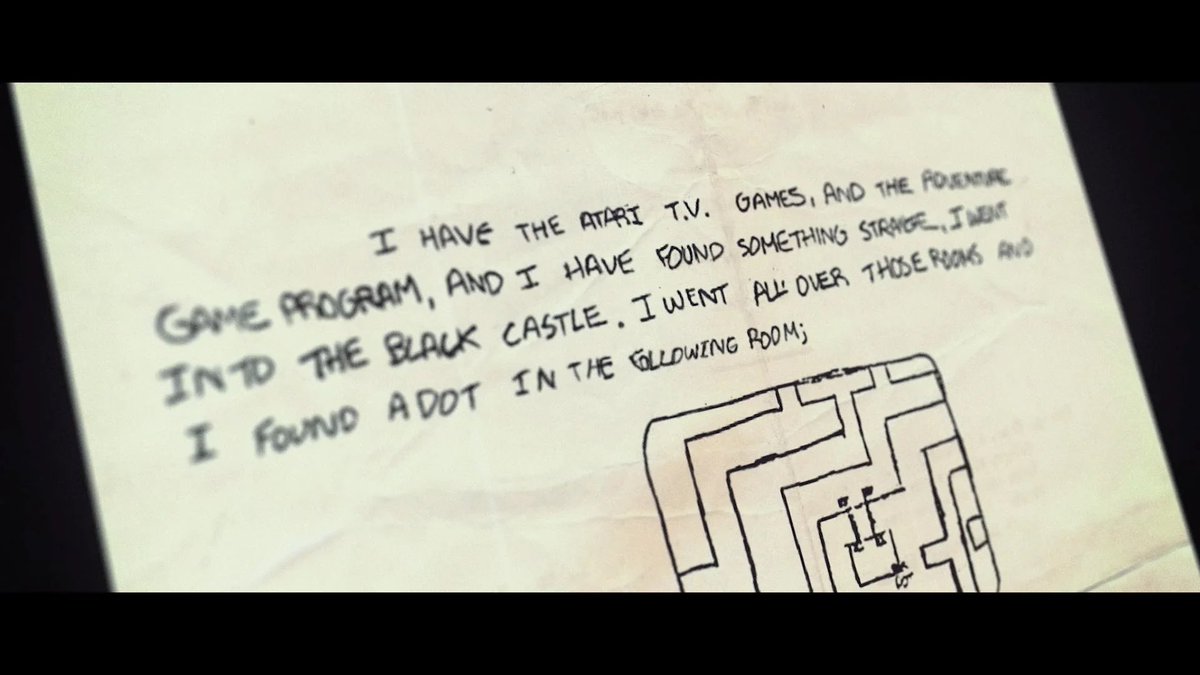 I HAVE THE ATARI T.V. GAMES, AND THE ADVENTURE
GAME PROGRAM, AND I HAVE FOUND SOMETHING STRANGE. I WENT
INTO THE BLACK CASTLE. I WENT ALL OVER THOSE ROOMS AND
I FOUND A DOT IN THE FOLLOWING ROOM;